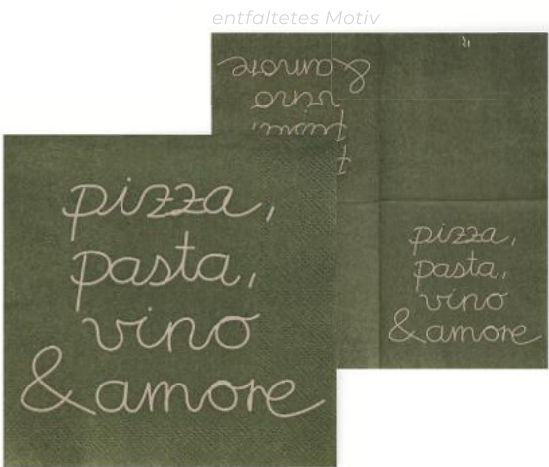 entfaltetes Motiv
& amore
vino
pizza,
pasta,
vino
& amore
pizza,
pasta,
vino
& amore